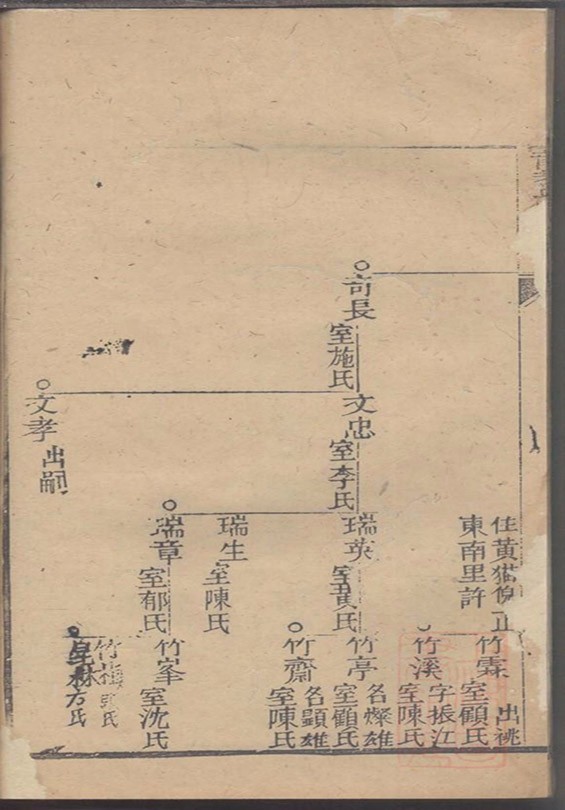 竹霖 室顧氏 出祧
住黃猫
東南里許
竹溪 字振江 室陳氏
奇長 室施氏
文忠 室李氏
瑞英 室黃氏
竹亭 名燦雄 室顧氏
竹齋 名顯雄 室陳氏
瑞生 室陳氏
瑞章 室郁氏
竹峯 室沈氏
竹梅
文孝 出嗣